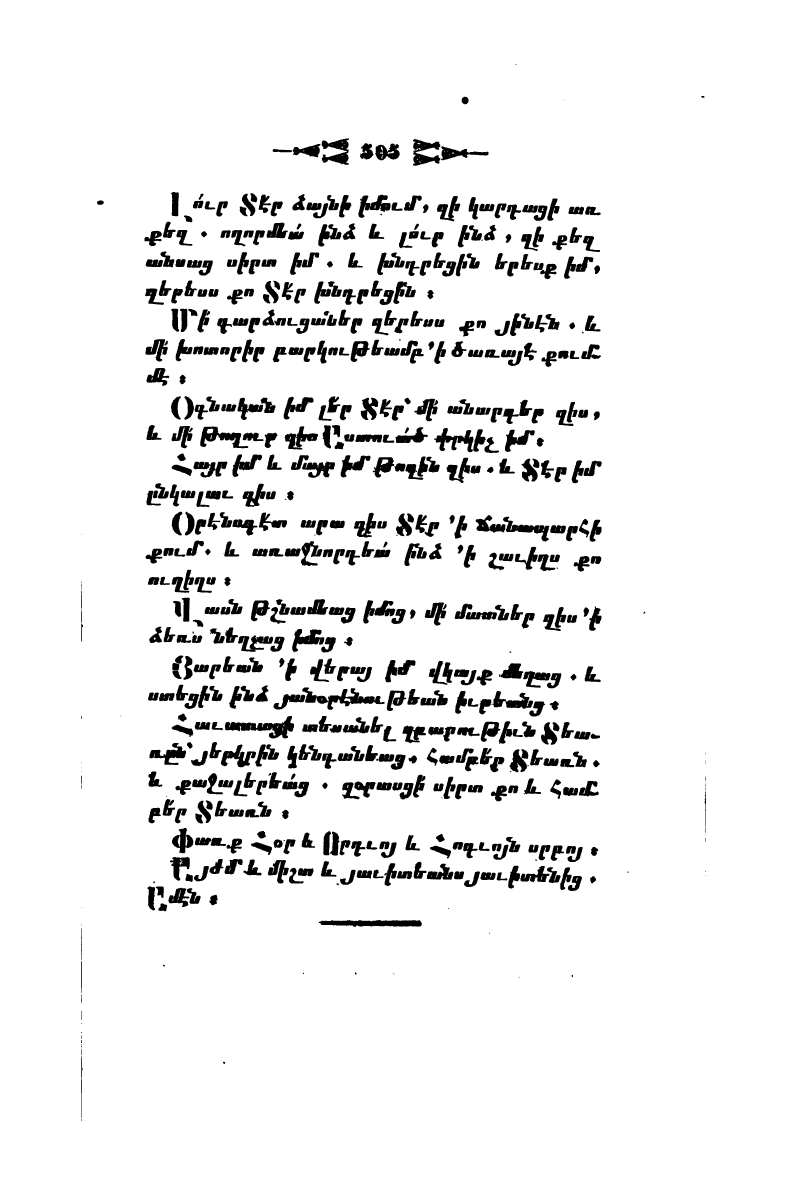 505
Լուր Տէր ձայնի իմում, զի կարդացի առ
քեզ. ողորմեա՛ ինձ և լո՛ւր ինձ, զի քեզ
անսաց սիրտ իմ. և խնդրեցին երեսք իմ,
զերեսս քո Տէր խնդրեցի՛ն ։
Մի՛ դարձուցաներ զերեսս քո յինէն. և
մի խոտորիր բարկութեամբ ՚ի ծառայէ քում՟
մէ ։
Օգնական իմ լեր Տէր՝ մի անարգեր զիս,
և մի թողուր զիս Աստուած փրկիչ իմ ։
Հայր իմ և մայր իմ թողին զիս. և Տէր իմ
ընկալաւ զիս ։
Օրէնսգէտ արա զիս Տէր ՚ի ճանապարհի
քում. և առաջնորդեա՛ ինձ ՚ի շաւիղս քո
ուղիղս ։
Վասն թշնամեաց իմոց, մի մատներ զիս ՚ի
ձեռս նեղչաց իմոց ։
Յարեան ՚ի վերայ իմ վկայք մեղաց. և
ստեցին ինձ յանօրէնութեան իւրեանց ։
Հաւատացի տեսանել զբարութիւն Տեա-
ռն՝ յերկրին կենդանեաց. Համբեր Տեառն.
և քաջալերեա՛ց. զօրասցի սիրտ քո և Համ՟
բեր Տեառն ։
Փառք Հօր և Որդւոյ և Հոգւոյն սրբոյ ։
Այժմ և միշտ և յաւիտեանս յաւիտենից.
Ամէն ։